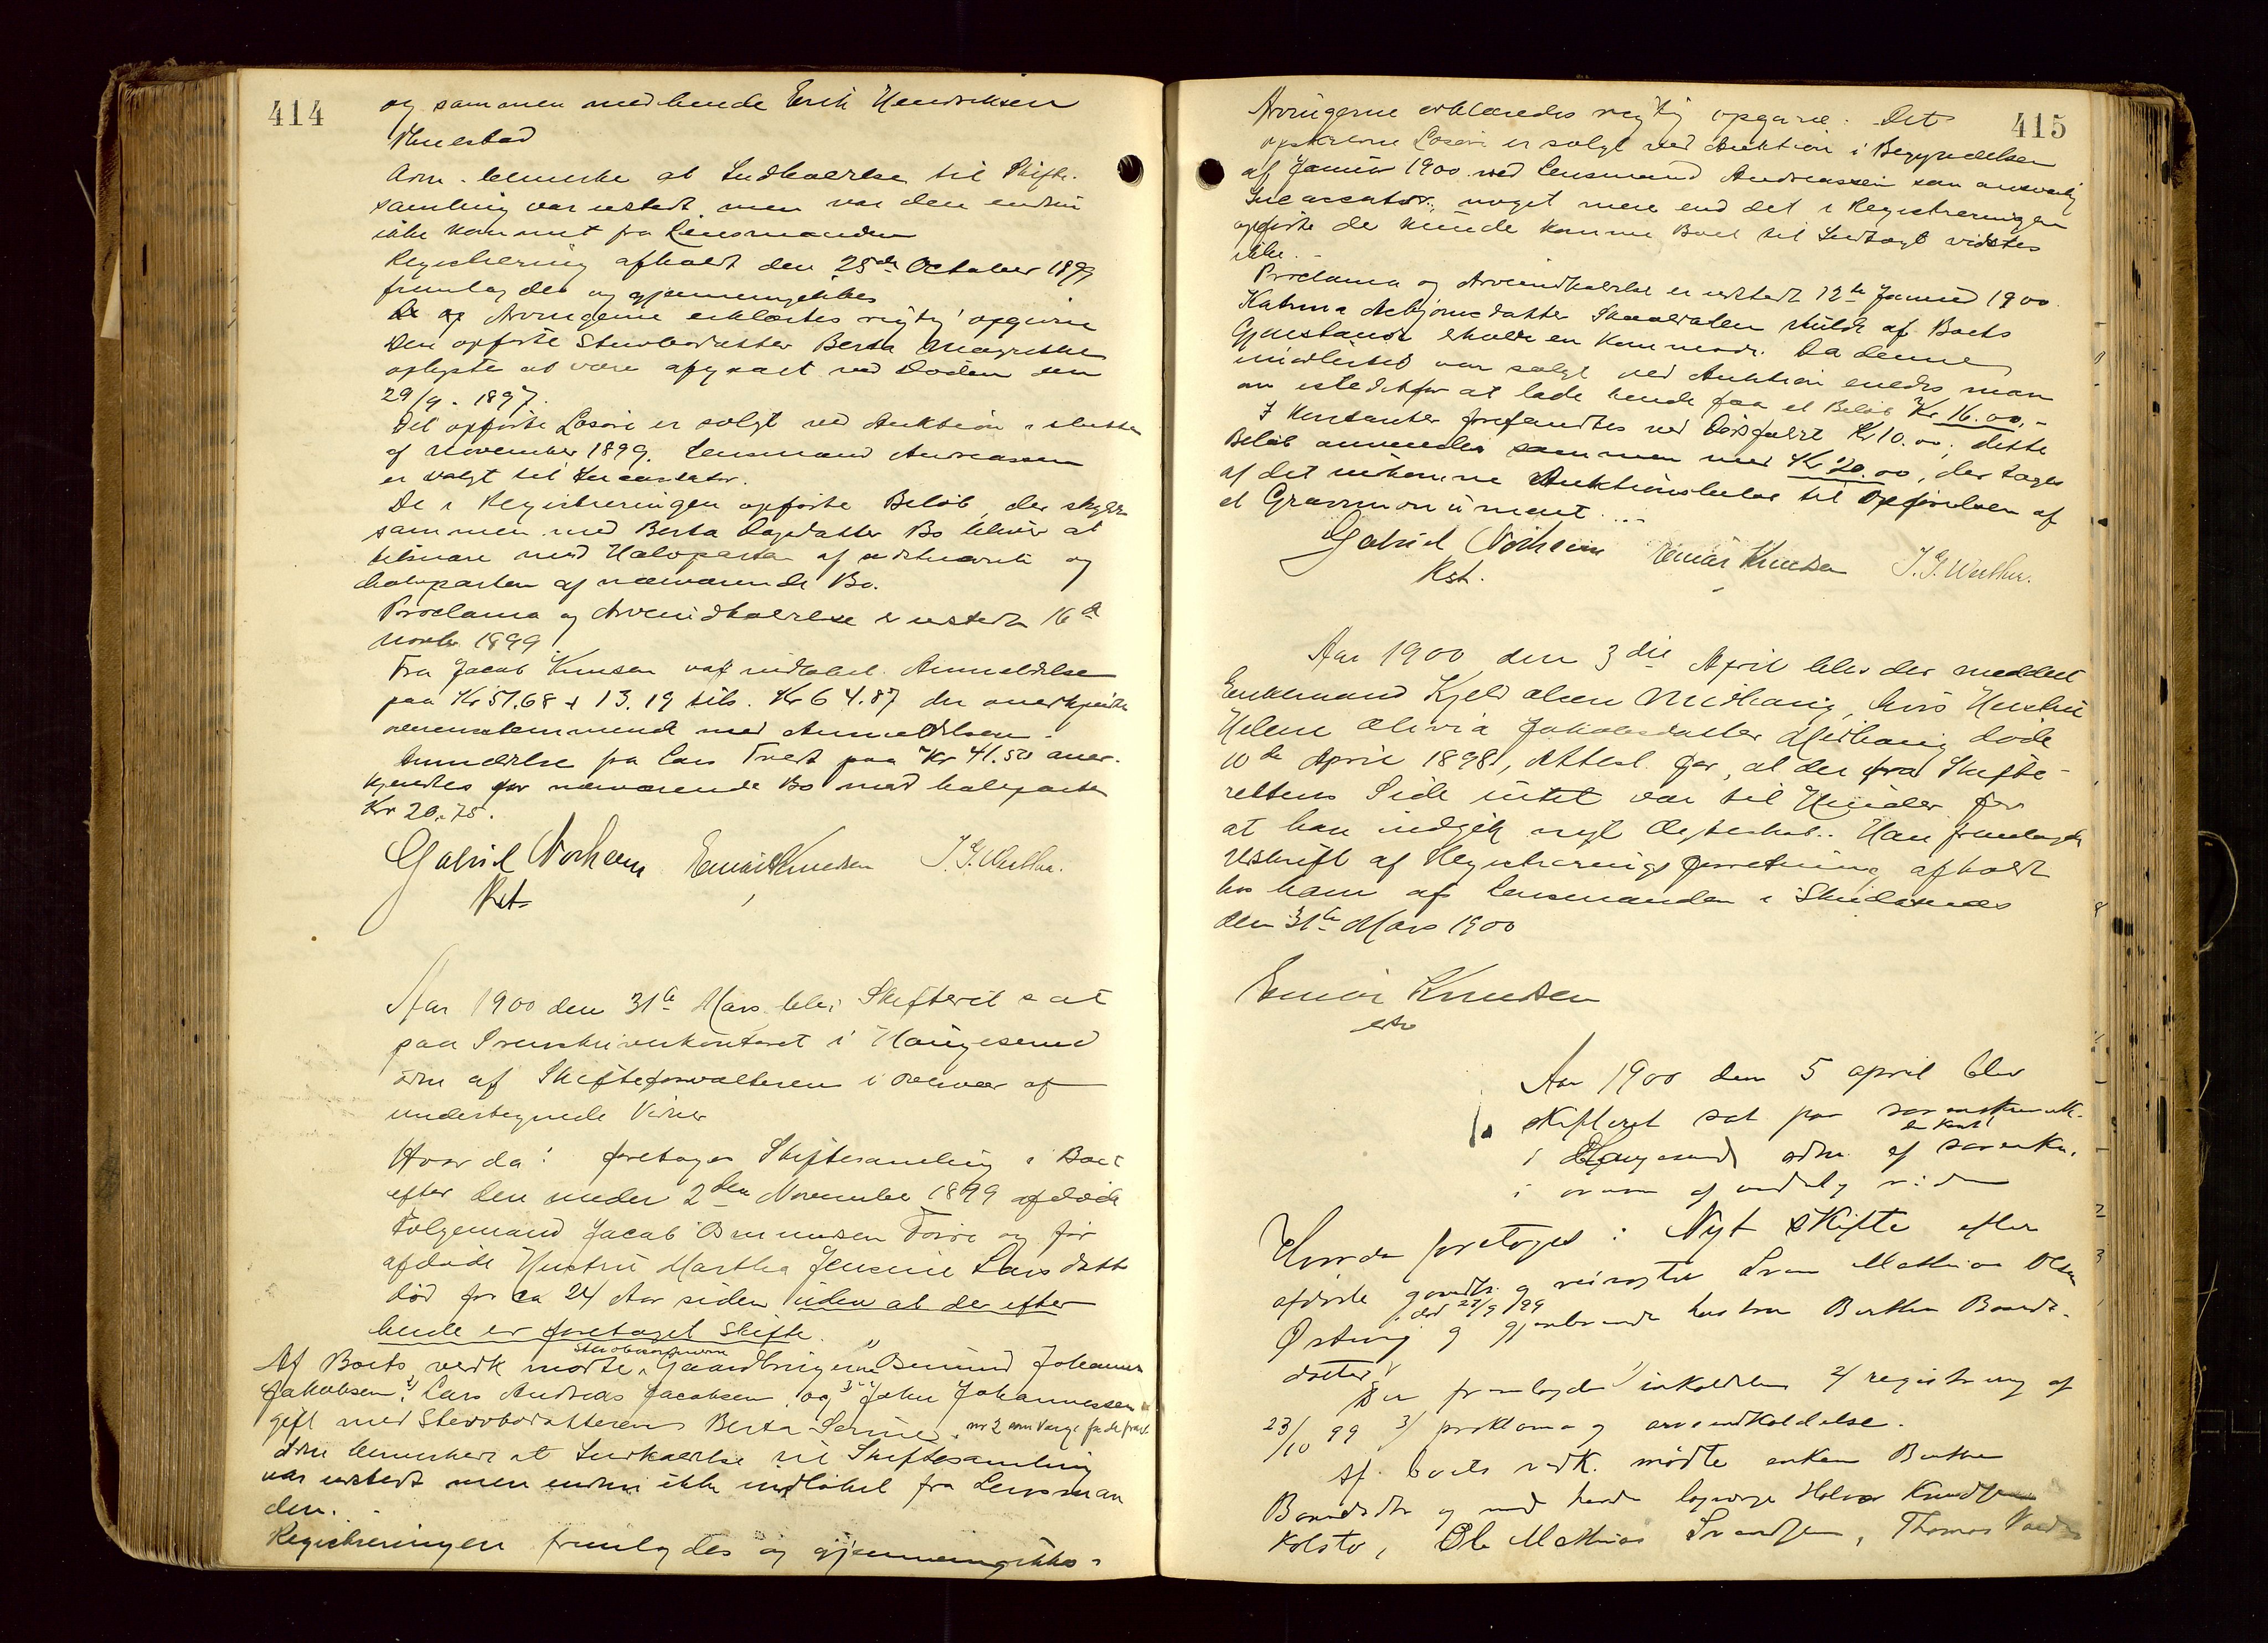 414
og sammen med hende Erik Hendriksen
Adm. bemerkede at Indkaldelse til Skifte-
samling var utstedt, men var den endnu
ikke kommet fra Lensmanden
Registrering afholdt den 25de October 1899
fremlagdes og gjennemgikkes
Arvingerne erklærtes rigtig opgivne
Den opførte Stervbodatter Berta Margrethe
oplystes at være afgaaet ved Døden den
29/9. 1897.
Det opførte Løsøre er solgt ved Auktion i slutten
af November 1899. Lensmand Andreassen
er valgt til Incassator.
De i Registreringen opførte Beløb, der skyldes
sammen med Berta Dagsdatter Bø bliver at
tilsvare med Halvparten af sidstnævnte og
halvparten af nærværende Bo.
Proclama og Arveindkaldelse er utstedt 16de
Novbr 1899
Fra Jacob Knusen var indløbet Anmeldelse
paa Kr 51.68 + 13.19 tils. Kr 64.87 der anerkjendtes
overensstemmende med Anmeldelsen.
Anmeldelse fra Lars Tvedt paa Kr 41.50 aner-
kjendtes for nærværende Bo med halvparten
Kr 20.75.
Gabriel Norheim Einar Knudsen J. G. Werther.
Kst.
Aar 1900 den 31te Mars blev Skifteret sat
paa Sorenskriverkontoret i Haugesund
adm af Skifteforvalteren i Overvær af
undertegnede Vidner
Hvor da: foretoges Skiftesamling i Boet
efter den under 2den November 1899 afdøde
Følgemand Jacob Osmundsen Førre og før
afdøde Hustru Martha Jensine Larsdatter
død for ca 24 Aar siden uden at der efter
hende er foretaget Skifte.
Af Boets vedk mødte Stervbosønnerne Gaardbrugerne Osmund Johannes
Jakobsen 2) Lars Andreas Jacobsen og 3) John Johannessen
gift med Stervbodatteren Berta Serine, nr 2 som Værge for de fravær
Adm bemerkede at Indkaldelse til Skiftesamling
var utstedt men endnu ikke indløbet fra Lensman
den.
Registreringen fremlagdes og gjennemgikkes.
415
Arvingerne erklæredes rigtig opgivne. Det
opskrevne Løsøre er solgt ved Auktion i Begyndelsen
af Januar 1900 med Lensmand Andreassen som ansvarlig
Incassator; noget mere end det i Registreringen
opførte der kunde komme Boet til Indtægt vidstes
ikke.
Proclama og Arveindkaldelse er utstedt 12te Januar 1900
Katrina Asbjørnsdatter skulde af Boets
Gjenstande erholde en Kommode. Da denne
imidlertid var solgt ved Auktion enedes man
om istedetfor at lade hende faa et Beløb Kr 16.00.-
I Kontanter forefandtes ved Dødsfaldet Kr 10.00; dette
Beløb anvendes sammen med Kr 20.00, der tages
af det indkomne Auktionsbeløb til Opførelsen af
et Gravmonument...
Gabriel Norheim Einar Knudsen J. G. Werther.
Kst.
Aar 1900 den 3die April blev der meddelt
Enkemand Kjeld Olsen Midhaug, hvis Hustru
Helene Olivia Jakobsdatter Midhaug døde
10de April 1898, Attest for, at der fra Skifte-
rettens Side intet var til Hinder for
at han indgik nyt Ægteskab. Han fremlagde
Utskrift af Registreringsforretning afholdt
hos ham af Lensmanden i Skudesnes
den 31te Mars 1900
Einar Knudsen
Aar 1900 den 5 april blev
skifteret sat paa sorenskriver
kont
i Haugesund adm. af sorenskr.
Hvor da foretoges: Nyt skifte efter
afdøde gaardbr. og Sven Mathias Olsen
død 27/9 99
og gjenlevende hustru Berthe Baards-
datter
Der fremlagdes 1) indkaldelse 2) registrering af
23/10 99 3) proklama og arveindkaldelse.
Af boets vedk. mødte enken Berthe
Baardsdtr og med hende lagværge Halvor Knudsen
Kolstø, Ole Mathias Svendsen, Thomas